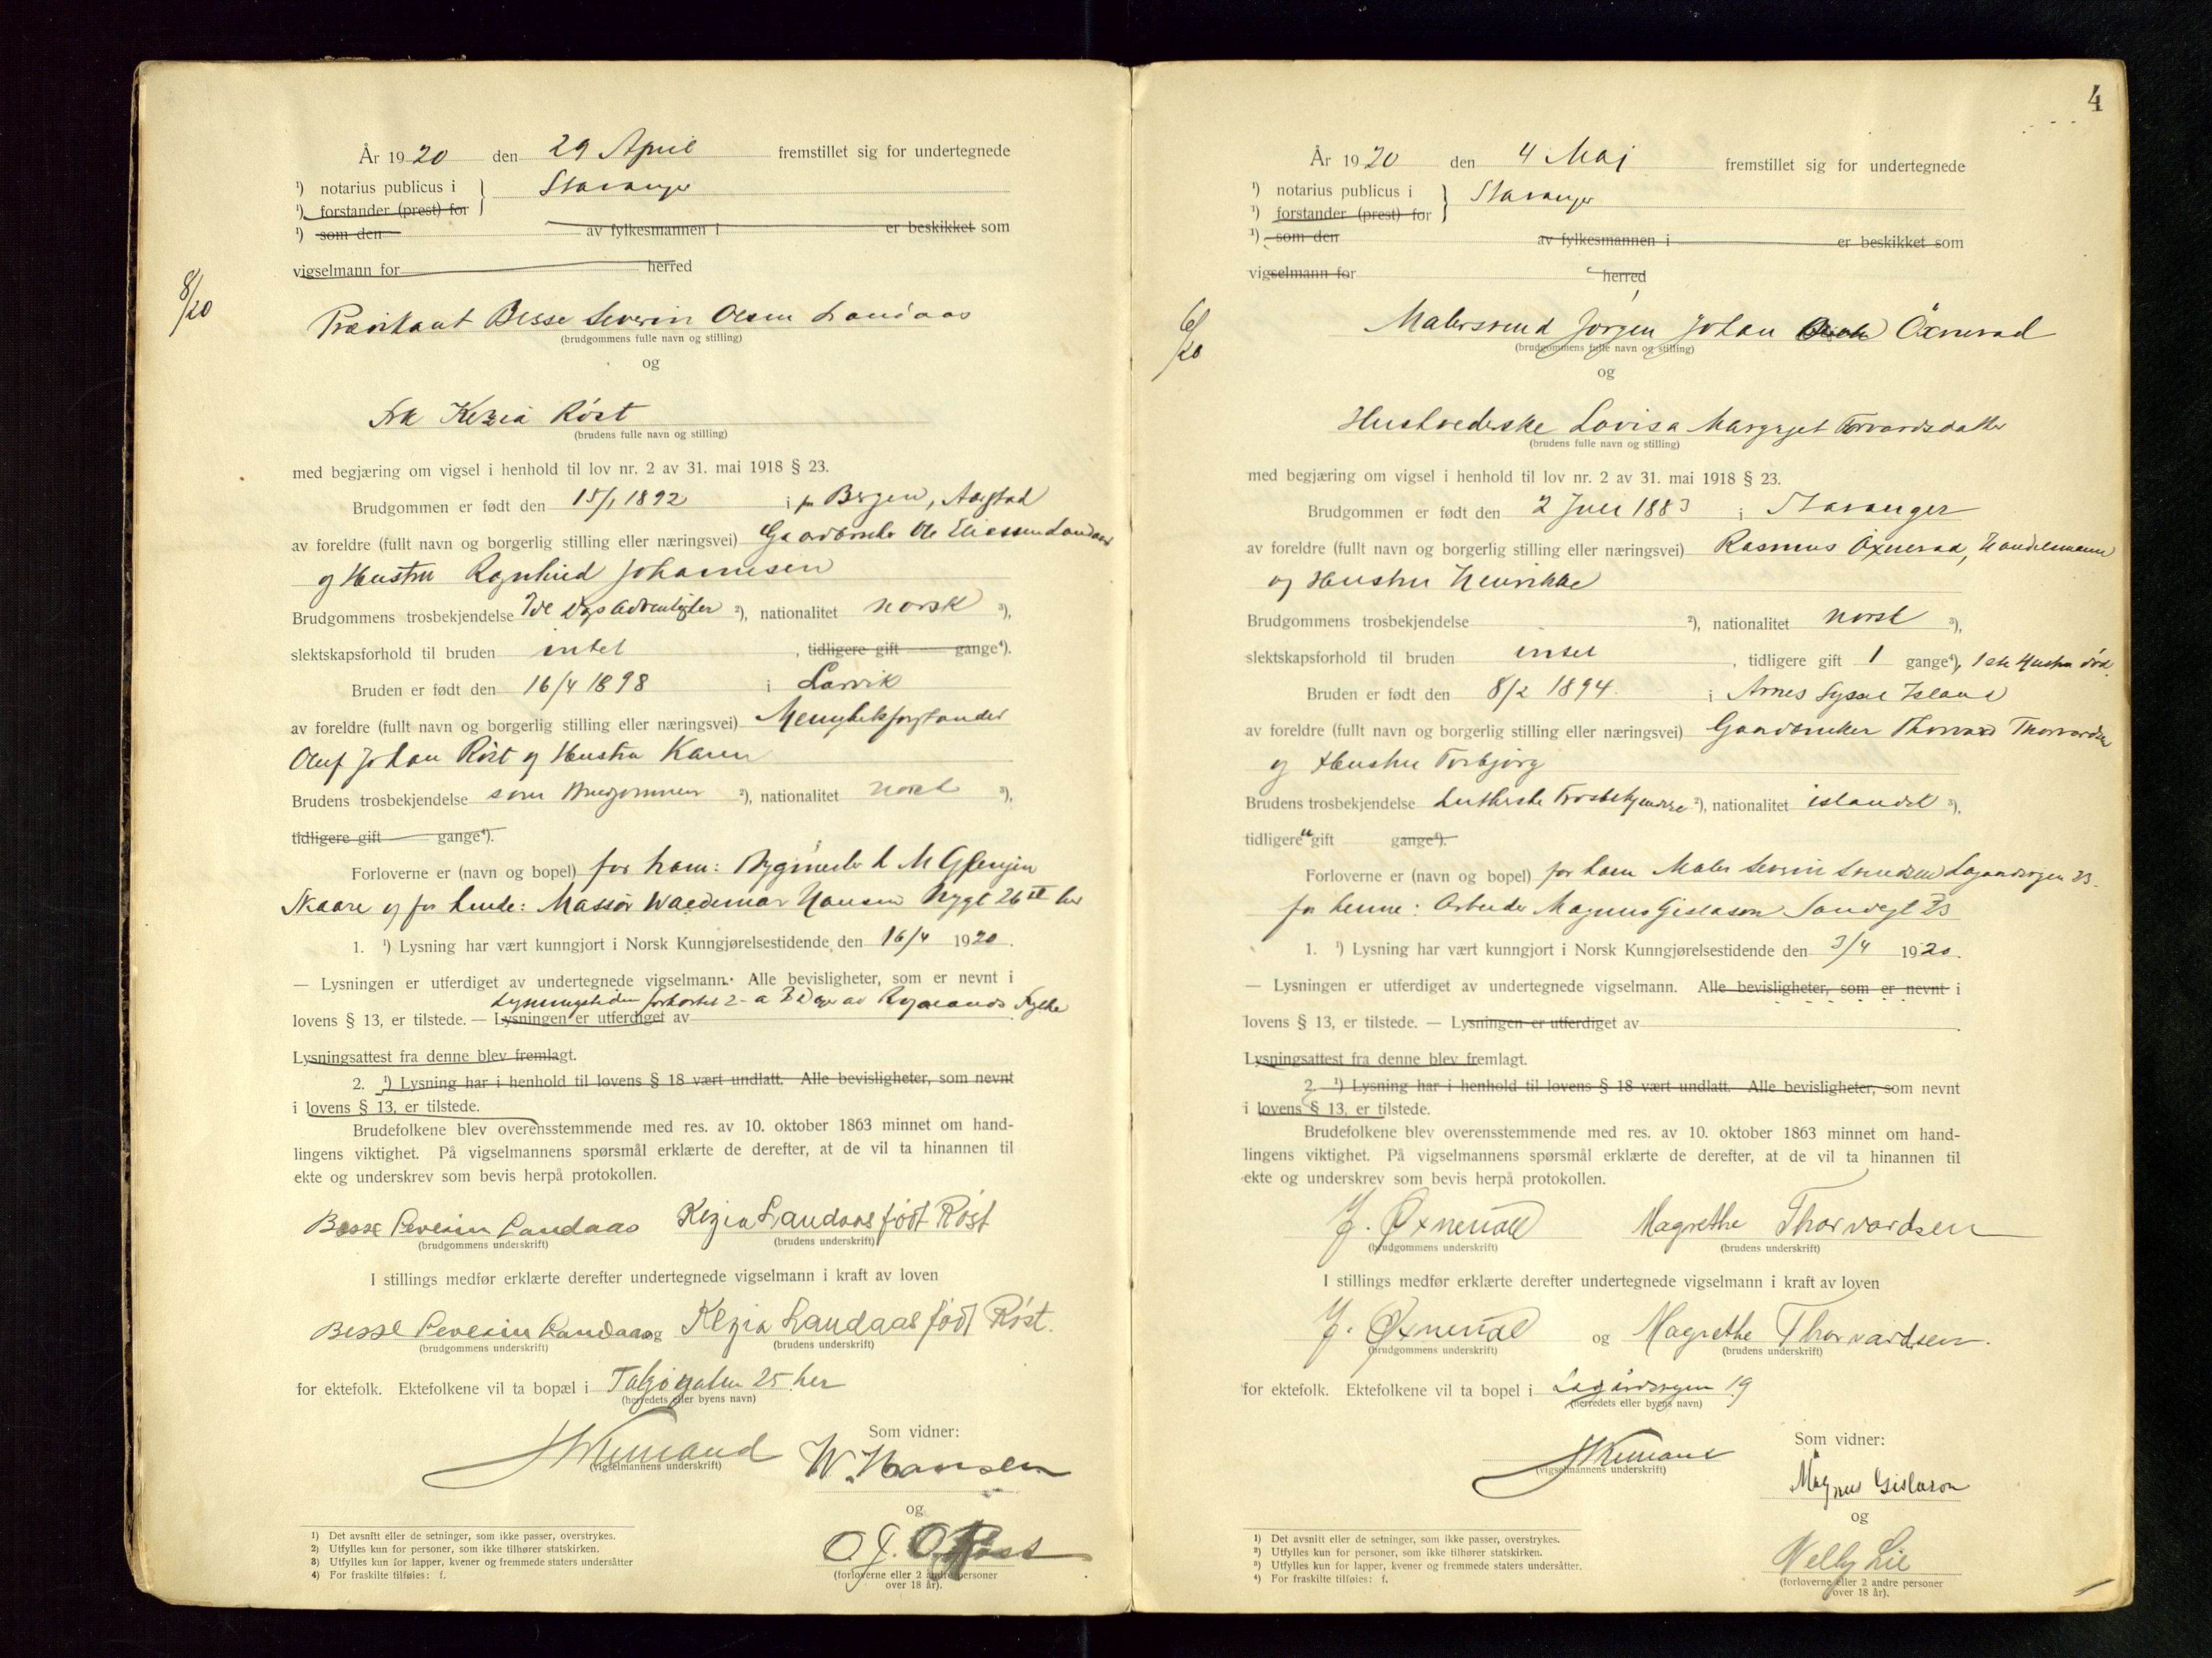 År 1920 den 29 April fremstillet sig for undertegnede
¹) notarius publicus i } Stavanger
¹) forstander (prest) for
¹) som den av fylkesmannen i er beskikket som
vigselmann for herred
8/20
Prædikant Besse Severin Olsen Landaas
(brudgommens fulle navn og stilling)
og
Frk Kezia Röst
(brudens fulle navn og stilling)
med begjæring om vigsel i henhold til lov nr. 2 av 31. mai 1918 § 23.
Brudgommen er født den 15/1 1892 i Bergen, Aarstad
av foreldre (fullt navn og borgerlig stilling eller næringsvei) Gaardbruker Ole Eliassen Landaas
og Hustru Ragnhild Johannesen
Brudgommens trosbekjendelse 7de Dags Adventister ²), nationalitet norsk ³),
slektskapsforhold til bruden intet , tidligere gift gange⁴).
Bruden er født den 16/4 1898 i Larvik
av foreldre (fullt navn og borgerlig stilling eller næringsvei) Menighetsforstander
Oluf Johan Röst og Hustru Karen
Brudens trosbekjendelse som Brudgommen ²), nationalitet norsk ³),
tidligere gift gange⁴).
Forloverne er (navn og bopel) for ham:
Skaare og for hende: Massör Waldemar Hansen Nygt 26 her
1. ¹) Lysning har vært kunngjort i Norsk Kunngjørelsestidende den 16/4 1920.
— Lysningen er utferdiget av undertegnede vigselmann. Alle bevisligheter, som er nevnt i
Lysningstiden forkortet 2 a 3 Dage av Rogalands Fylke
lovens § 13, er tilstede. — Lysningen er utferdiget av
Lysningsattest fra denne blev fremlagt.
2. ¹) Lysning har i henhold til lovens § 18 vært undlatt. Alle bevisligheter, som nevnt
i lovens § 13, er tilstede.
Brudefolkene blev overensstemmende med res. av 10. oktober 1863 minnet om hand-
lingens viktighet. På vigselmannens spørsmål erklærte de derefter, at de vil ta hinannen til
ekte og underskrev som bevis herpå protokollen.
Besse Severin Landaas Kezia Landaas födt Röst
(brudgommens underskrift) (brudens underskrift)
I stillings medfør erklærte derefter undertegnede vigselmann i kraft av loven
Besse Severin Landaas og Kezia Landaas födt Röst.
(brudgommens underskrift) (brudens underskrift)
for ektefolk. Ektefolkene vil ta bopæl i 25 her
(herredets eller byens navn)
Som vidner:
(vigselmannens underskrift)
W. Hansen
og
O. J. O. Röst
(forloverne eller 2 andre personer
over 18 år).
1) Det avsnitt eller de setninger, som ikke passer, overstrykes.
2) Utfylles kun for personer, som ikke tilhører statskirken.
3) Utfylles kun for lapper, kvener og fremmede staters undersåtter
4) For fraskilte tilføies: f.
4
År 1920 den 4 Mai fremstillet sig for undertegnede
¹) notarius publicus i } Stavanger
¹) forstander (prest) for
¹) som den av fylkesmannen i er beskikket som
vigselmann for herred
6/20
Malersvend Jörgen Johan Öxnevad
(brudgommens fulle navn og stilling)
og
Husholderske Lovisa Margrjet Torvardsdatter
(brudens fulle navn og stilling)
med begjæring om vigsel i henhold til lov nr. 2 av 31. mai 1918 § 23.
Brudgommen er født den 2 Juli 1883 i Stavanger
av foreldre (fullt navn og borgerlig stilling eller næringsvei) Rasmus Öxnevad, Handelsmann
og Hustru Henrikke
Brudgommens trosbekjendelse ²), nationalitet norsk ³),
slektskapsforhold til bruden intet , tidligere gift 1 gange⁴), 1ste Hustru död.
Bruden er født den 8/2 1894. i Arnes Syssel Island
av foreldre (fullt navn og borgerlig stilling eller næringsvei) Gaardbruker Thorvard Thorvardsen
og Hustru Torbjörg
Brudens trosbekjendelse Lutherske Trosbekjendelse ²), nationalitet islandsk ³),
tidligere gift gange⁴).
Forloverne er (navn og bopel) for ham Maler Severin Svendsen Lagaardsveien 23.
for henne: Arbeider Magnus Gislason Sandvgt 23
1. ¹) Lysning har vært kunngjort i Norsk Kunngjørelsestidende den 3/4 1920.
— Lysningen er utferdiget av undertegnede vigselmann. Alle bevisligheter, som er nevnt i
lovens § 13, er tilstede. — Lysningen er utferdiget av
Lysningsattest fra denne blev fremlagt.
2. ¹) Lysning har i henhold til lovens § 18 vært undlatt. Alle bevisligheter, som nevnt
i lovens § 13, er tilstede.
Brudefolkene blev overensstemmende med res. av 10. oktober 1863 minnet om hand-
lingens viktighet. På vigselmannens spørsmål erklærte de derefter, at de vil ta hinannen til
ekte og underskrev som bevis herpå protokollen.
J. Øxnevad Magrethe Thorvardsen
(brudgommens underskrift) (brudens underskrift)
I stillings medfør erklærte derefter undertegnede vigselmann i kraft av loven
J. Øxnevad og Magrethe Thorvardsen.
(brudgommens underskrift) (brudens underskrift)
for ektefolk. Ektefolkene vil ta bopel i Lagårdsveien 19
(herredets eller byens navn)
Som vidner:
(vigselmannens underskrift)
Magnus Gislason
og
Nelly Lie
(forloverne eller 2 andre personer
over 18 år).
1) Det avsnitt eller de setninger, som ikke passer, overstrykes.
2) Utfylles kun for personer, som ikke tilhører statskirken.
3) Utfylles kun for lapper, kvener og fremmede staters undersåtter.
4) For fraskilte tilføies: f.